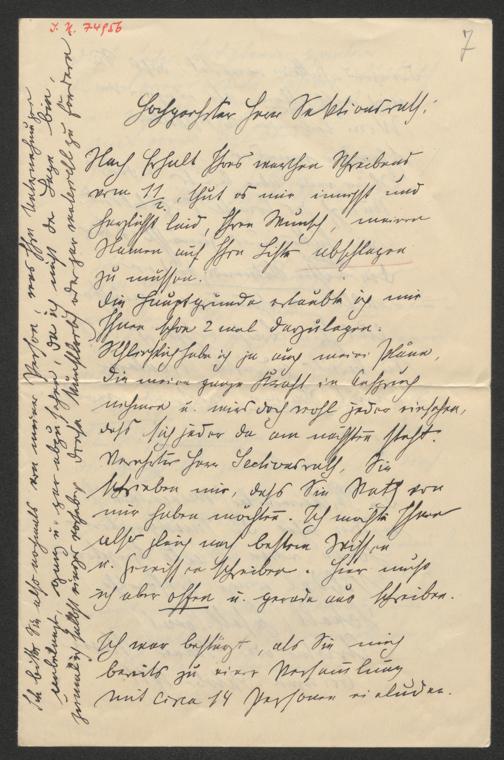 I. N. 74956
7
Hochgeehrter Herr Sektionsrath!
Nach Erhalt Ihres werthen Schreibens
vom 11/, thut es mir innigst und
herzlichst leid, Ihren Wunsch, meinen
Namen auf Ihre Liste abschlagen
zu müssen.
Die Hauptgründe erlaubte ich mir
Ihnen schon 2 mal darzulegen.
Schließlich habe ich ja auch meine Pläne,
die meine ganze Kraft in Anspruch
nehmen u. wird doch wohl jeder einsehen,
daß sich jeder da am nächsten steht.
Verehrter Herr Sectionsrath, Sie
schrieben mir, daß Sie Rath von
mir haben möchten. Ich möchte Ihnen
also gleich nach bestem Wissen
u. Gewissen schreiben. Hier muß
ich aber offen u. gerade aus schreiben.
Ich war bestürzt, als Sie mich
bereits zu einer Versammlung
mit circa 14 Personen einluden.
Ich bitte Sie also nochmals von meiner Person, was Ihre Unternehmung
anbelangt, ganz u. gar abzusehen, da ich nicht in der Lage bin,
materiell zu fördern